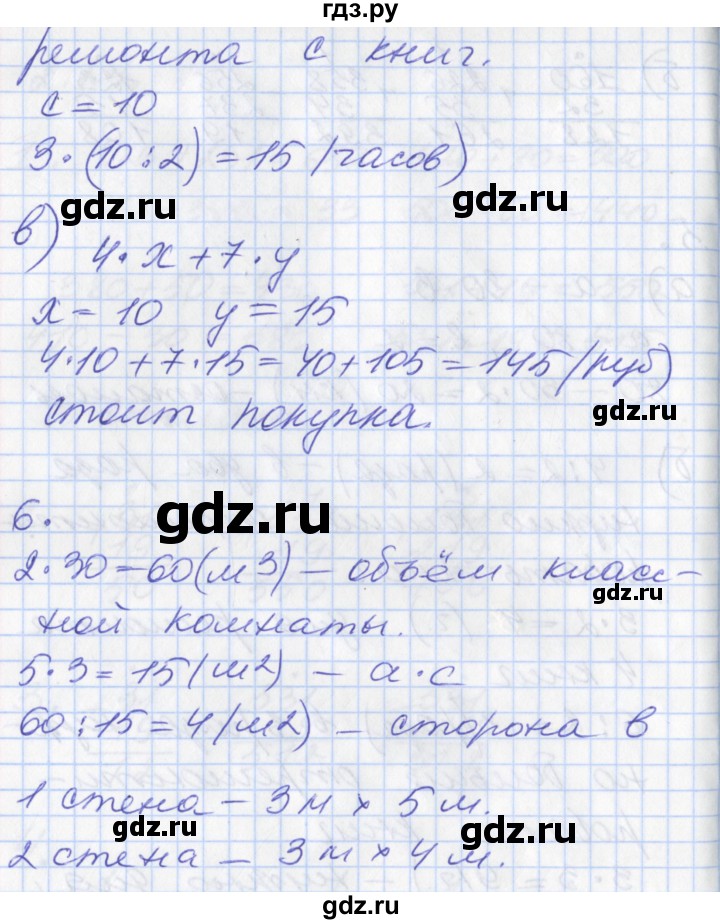 гдз.ру
ремонта с книг.
с = 10
3·(10:2) = 15 (часов)
gdz.ru
gdz.ru
в) 4·x + 7·y
x = 10 y = 15
4·10 + 7·15 = 40 + 105 = 145 (руб)
стоит покупка.
gdz.ru
6.
gdz.ru
2·30 = 60 (м3) – объём класс-
gdz.ru
ной комнаты.
5·3 = 15 (м2) – а·с
60:15 = 4 (м2) – сторона в
1 стена – 3м × 5м.
gdz.ru
gdz.ru
2 стена – 3м × 4м.
gdz.ru